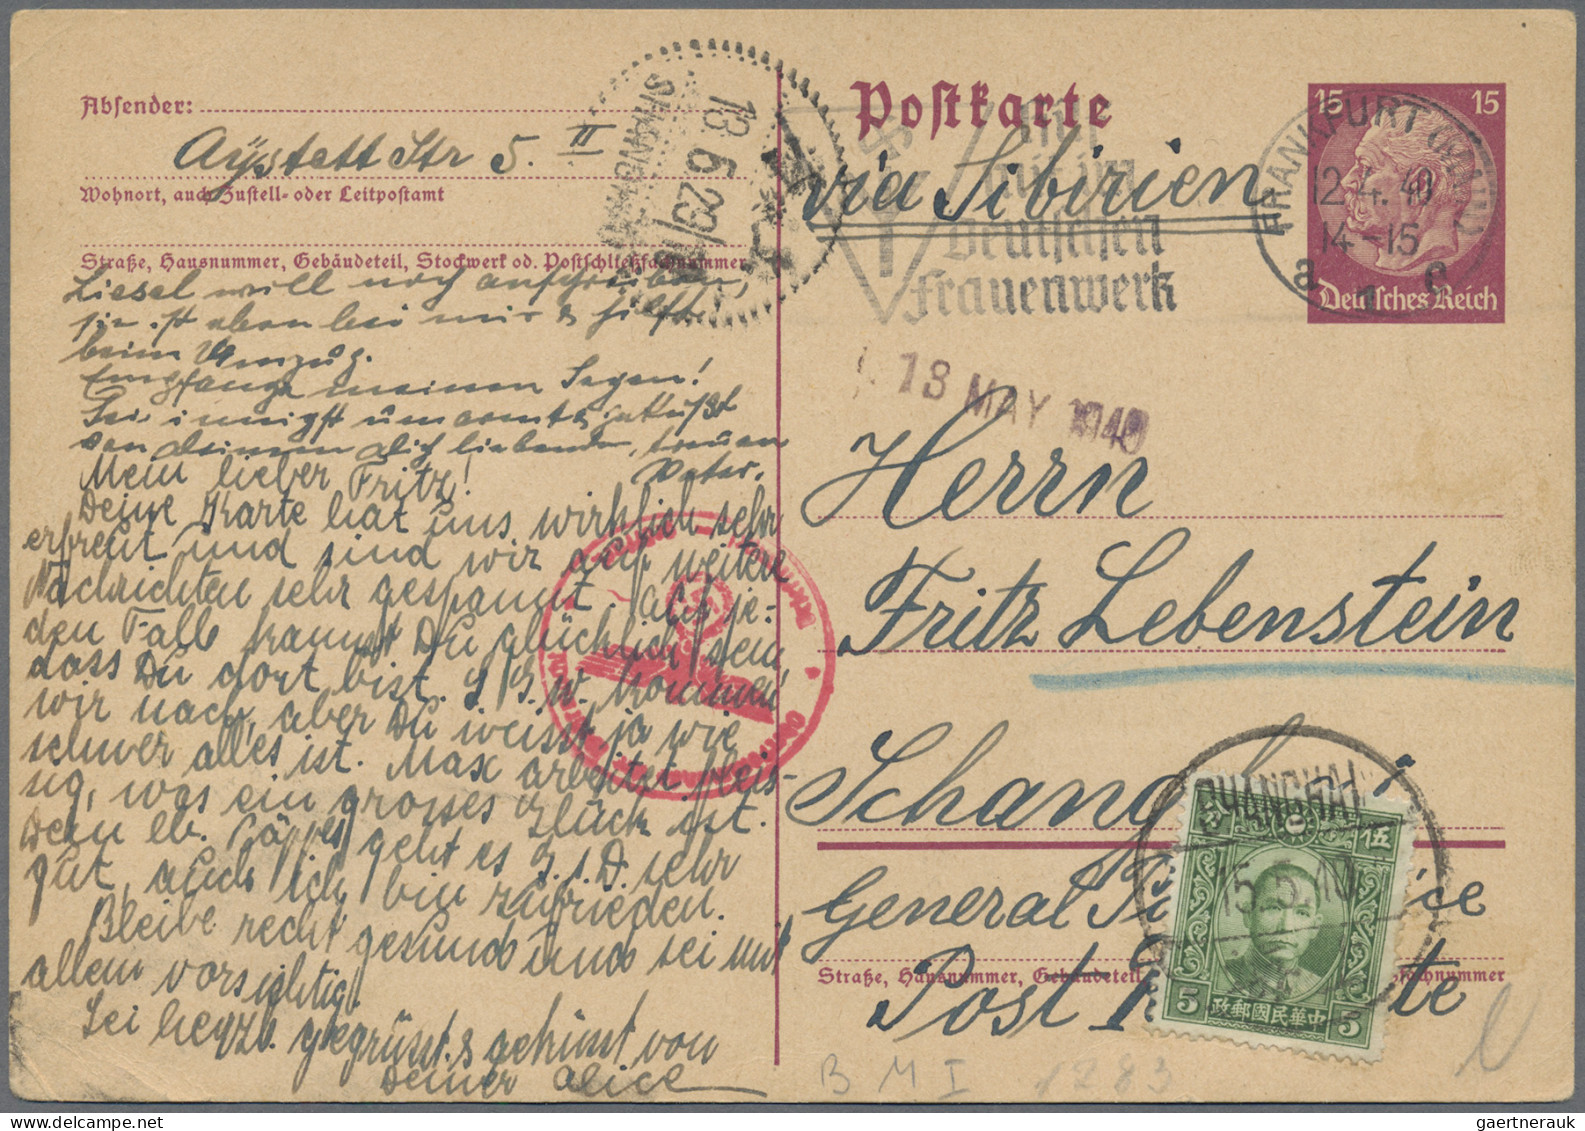 Absender:
Aystett Str 5. II
Wohnort, auch Zustell- oder Leitpostamt
Straße, Hausnummer, Gebäudeteil, Stockwerk od. Postschließfachnummer
Liesel will noch anschreiben,
sie ist eben bei mir & hilft
beim Umzug.
Empfange meinen Segen!
Sei innigst umarmt & geküßt
von deinem dich liebenden, treuen
Vater.
Mein lieber Fritz!
Deine Karte hat uns wirklich sehr
erfreut und sind wir auf weitere
Nachrichten sehr gespannt. Auf je-
den Fall kannst Du glücklich sein,
dass Du dort bist. S. G. w. kommen
wir nach, aber Du weisst ja wie
schwer alles ist. Max arbeitet fleis-
sig, was ein grosses Glück ist.
Dem lb. geht es G. s. D. sehr
gut, auch ich bin zufrieden.
Bleibe recht gesund und sei mit
allem vorsichtig!
Sei herzl. gegrüsst & geküsst von
Deiner Alice
SHANGHAI
13 5 29
Postkarte
via Sibirien
Deutschen
Frauenwerk
FRANKFURT (MAIN)
12.4.40
14-15
a 1 e
15 15
Deutsches Reich
13 MAY 1940
Herrn
Fritz Lebenstein
Schanghai
General Post Office
Post Restante
Straße, Hausnummer, Gebäudeteil
fachnummer
SHANGHAI
15.5.40
伍
5 5
中華民國郵政
B M I 1283
gaertnerauk